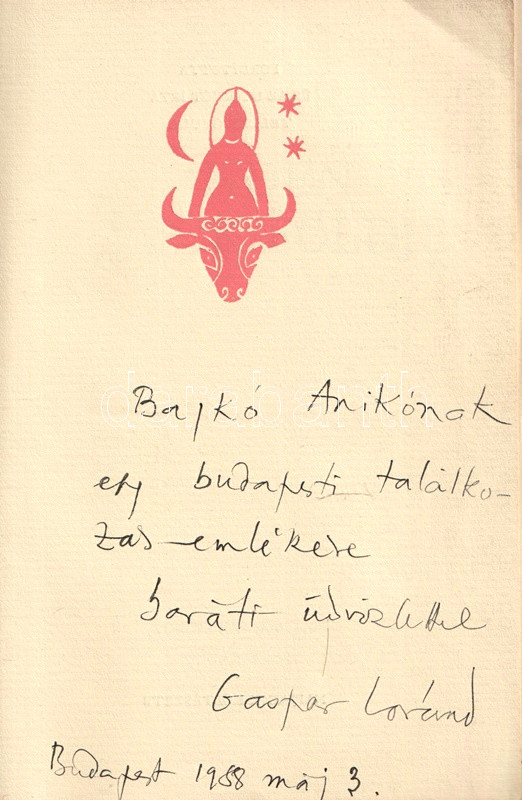 Bajkó Anikónak
egy budapesti találko-
zás emlékere
baráti üdvözlettel
Gaspar Loránd
Budapest 1988 máj 3.
darabanth